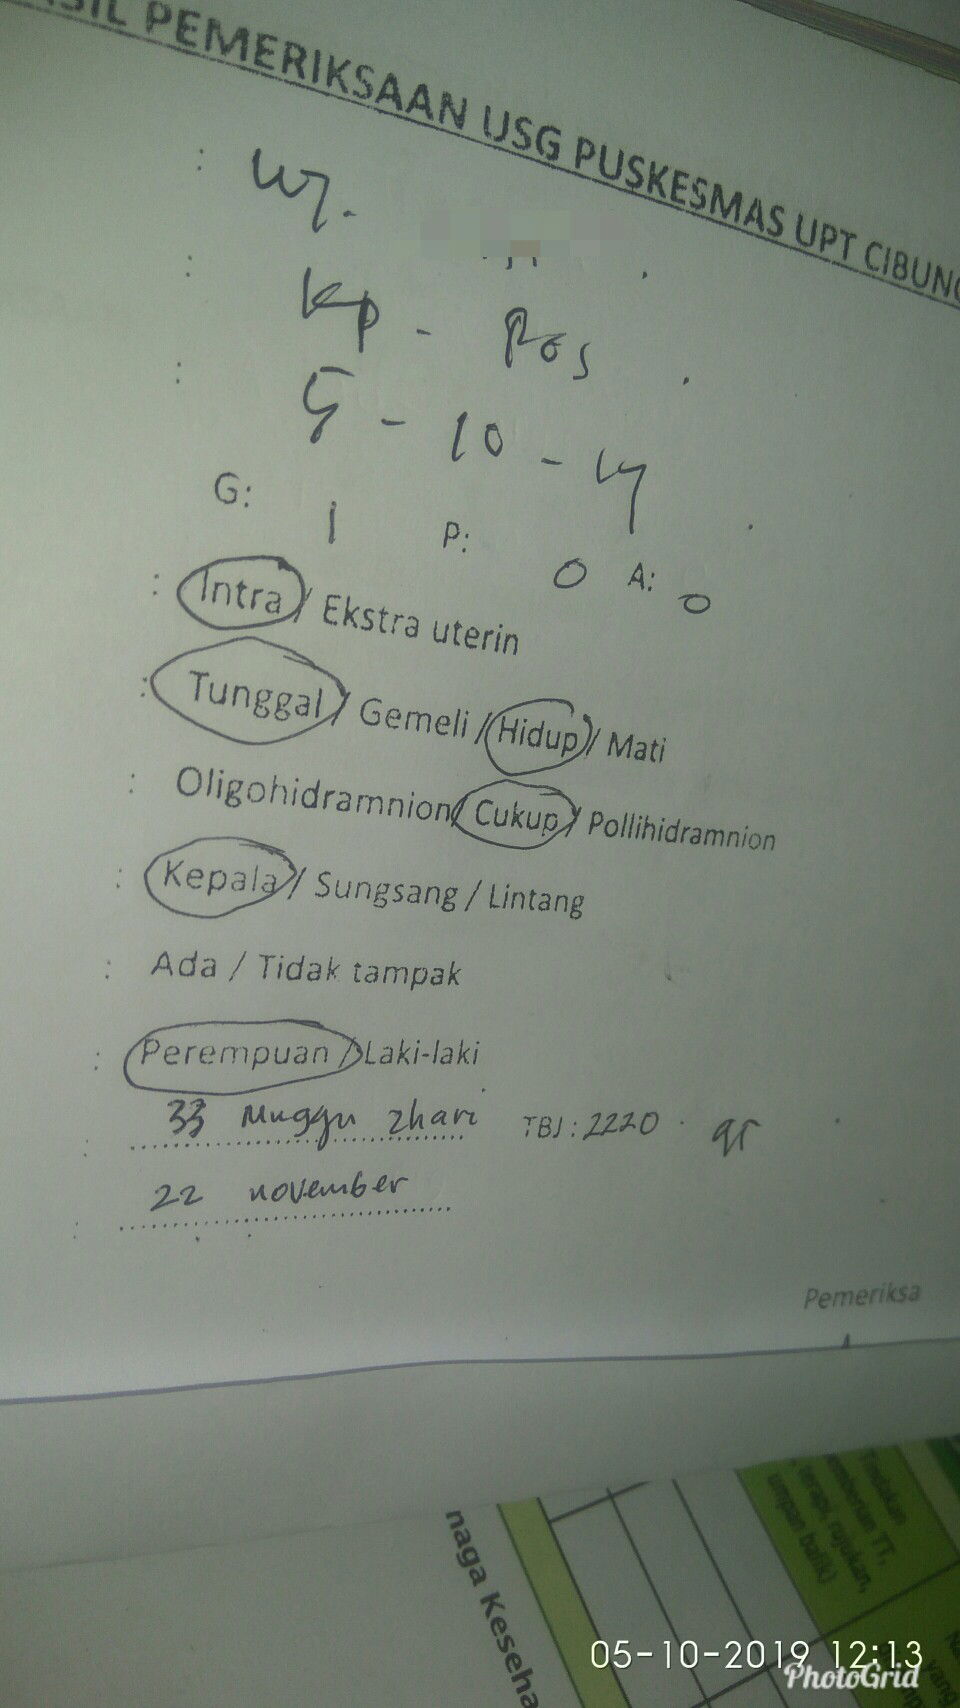 HASIL PEMERIKSAAN USG PUSKESMAS UPT CIBUNG
:
:
Kp - Pos
: 5 - 10 - 19
G: 1 P: 0 A: 0
: Intra / Ekstra uterin
: Tunggal / Gemeli / Hidup / Mati
: Oligohidramnion / Cukup / Pollihidramnion
: Kepala / Sungsang / Lintang
: Ada / Tidak tampak
: Perempuan / Laki-laki
: 33 Muggu 2hari TBJ : 2220 gr
: 22 november
Pemeriksa
naga Keseha
Tindakan
TT,
rujukan,
umpan balik)
yang
05-10-2019 12:13
PhotoGrid